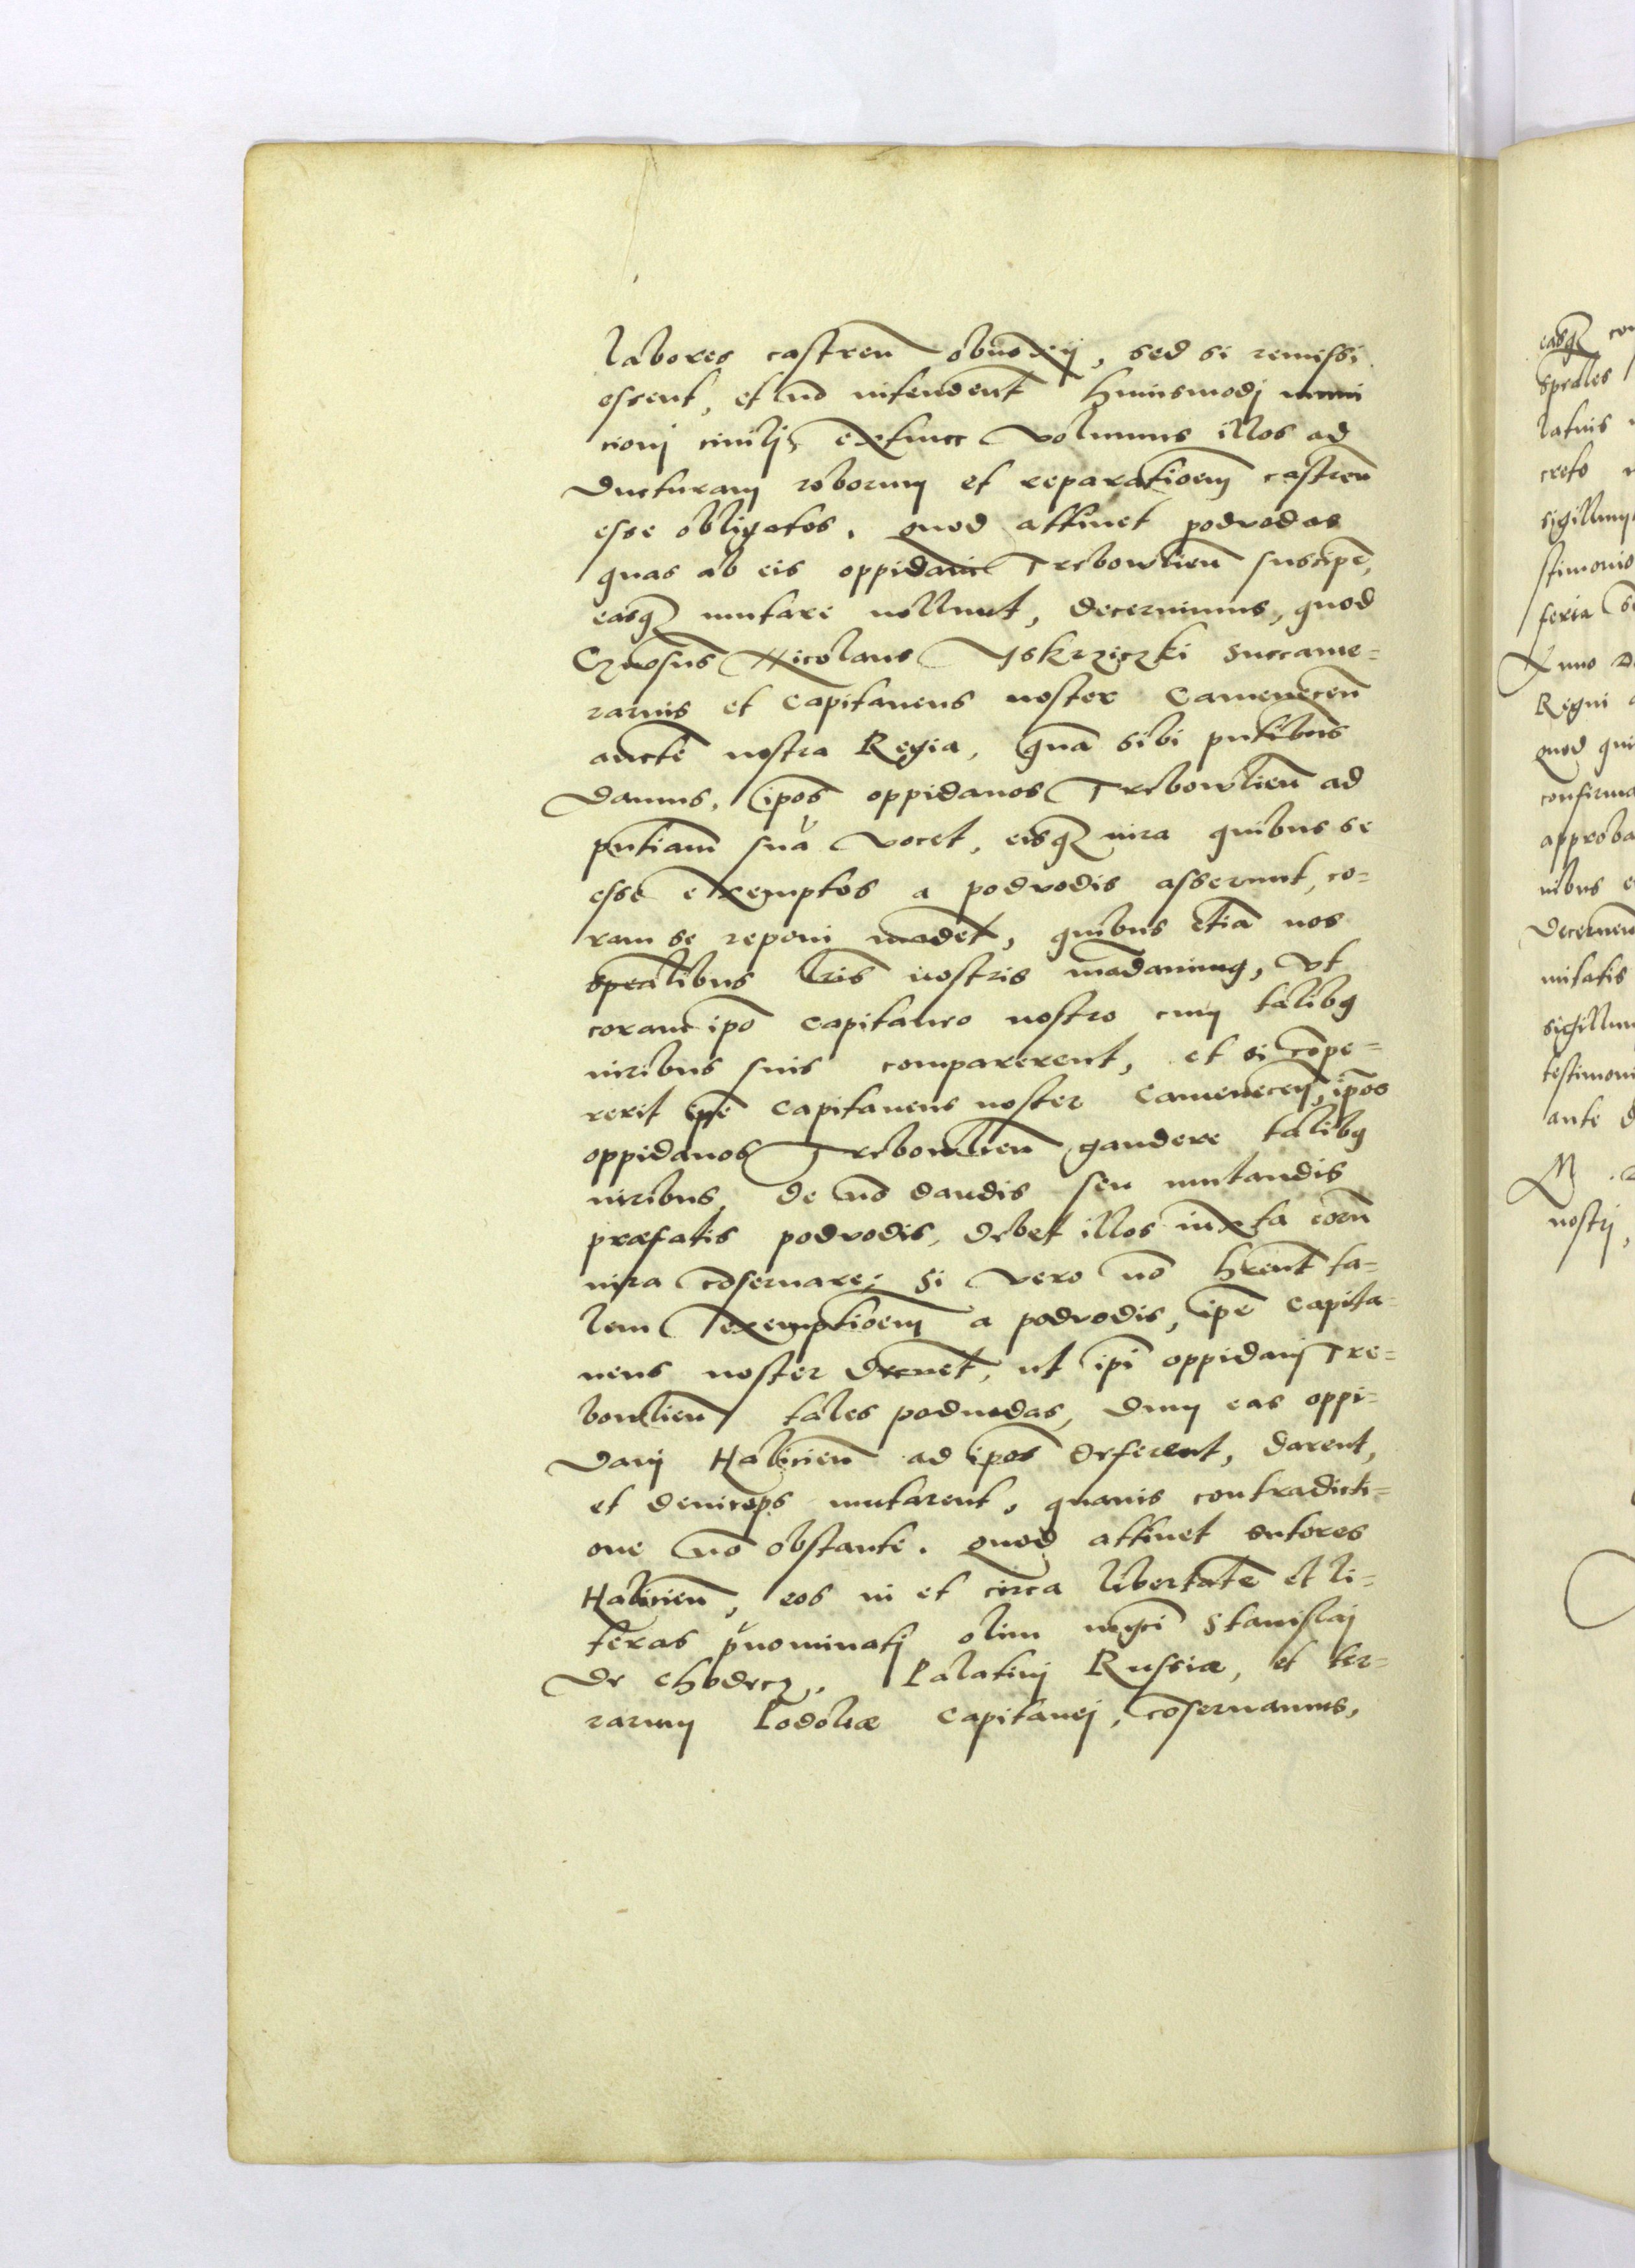 labores castreñ obnoxij, sed si remissi
essent, et nō intendent huiusmodi muni
cionj ciuilj, extunc volumus illos ad
ducturam roborum et reparatioem castreñ
esse obligatos. quod attinet podvodas
quas ab eis oppidani Trebowlieñ suscipe,
easq mutare nollent, decernimus, quod
Nicolaus Iskrziczki succame=
rarius et Capitaneus noster Cameneceñ
aucte nostra Regia, quā sibi pntibus
damus, ipos oppidanos Trebowlieñ ad
pntiam suā vocet, eisq iura quibus se
esse exemptos a podvodis asserunt, co=
ram se reponi madet, quibus etiā nos
specalibus lris nostris madamus, vt
coram ipo capitaneo nostro cum talibq
iuribus suis comparerent, et si cōpe=
rerit ipe Capitaneus noster Camenecen, ipos
oppidanos Trebowlieñ gaudere talibq
iuribus, de nō dandis seu mutandis
præfatis podvodis, debet illos iuxta eorū
iura cōseruare; Si vero nō hrent ta=
lem exemptioem a podvodis, ipe Capita=
neus noster decnet, ut ipi oppidanj Tre=
bowlieñ tales podvodas, dum eas oppi=
danj Halicieñ ad ipos deferent, darent,
et deniceps mutarent, quauis contradicti=
one nō obstante. Quod attinet sutores
Halicieñ, eos in et circa libertatē et li=
teras pnominatj olim mgci Stanislaj
de Chodecz, Palatinj Russiæ, et ter=
rarum Podoliæ Capitanej, cōseruamus,
easq
sprales
latuis
creto
sigillum
stimonio
feria
Anno
Regni
quod qui
confirma
approba
nibus
Decernen
mitatis
sigillum
testimoni
ante d
M.
nostrj,